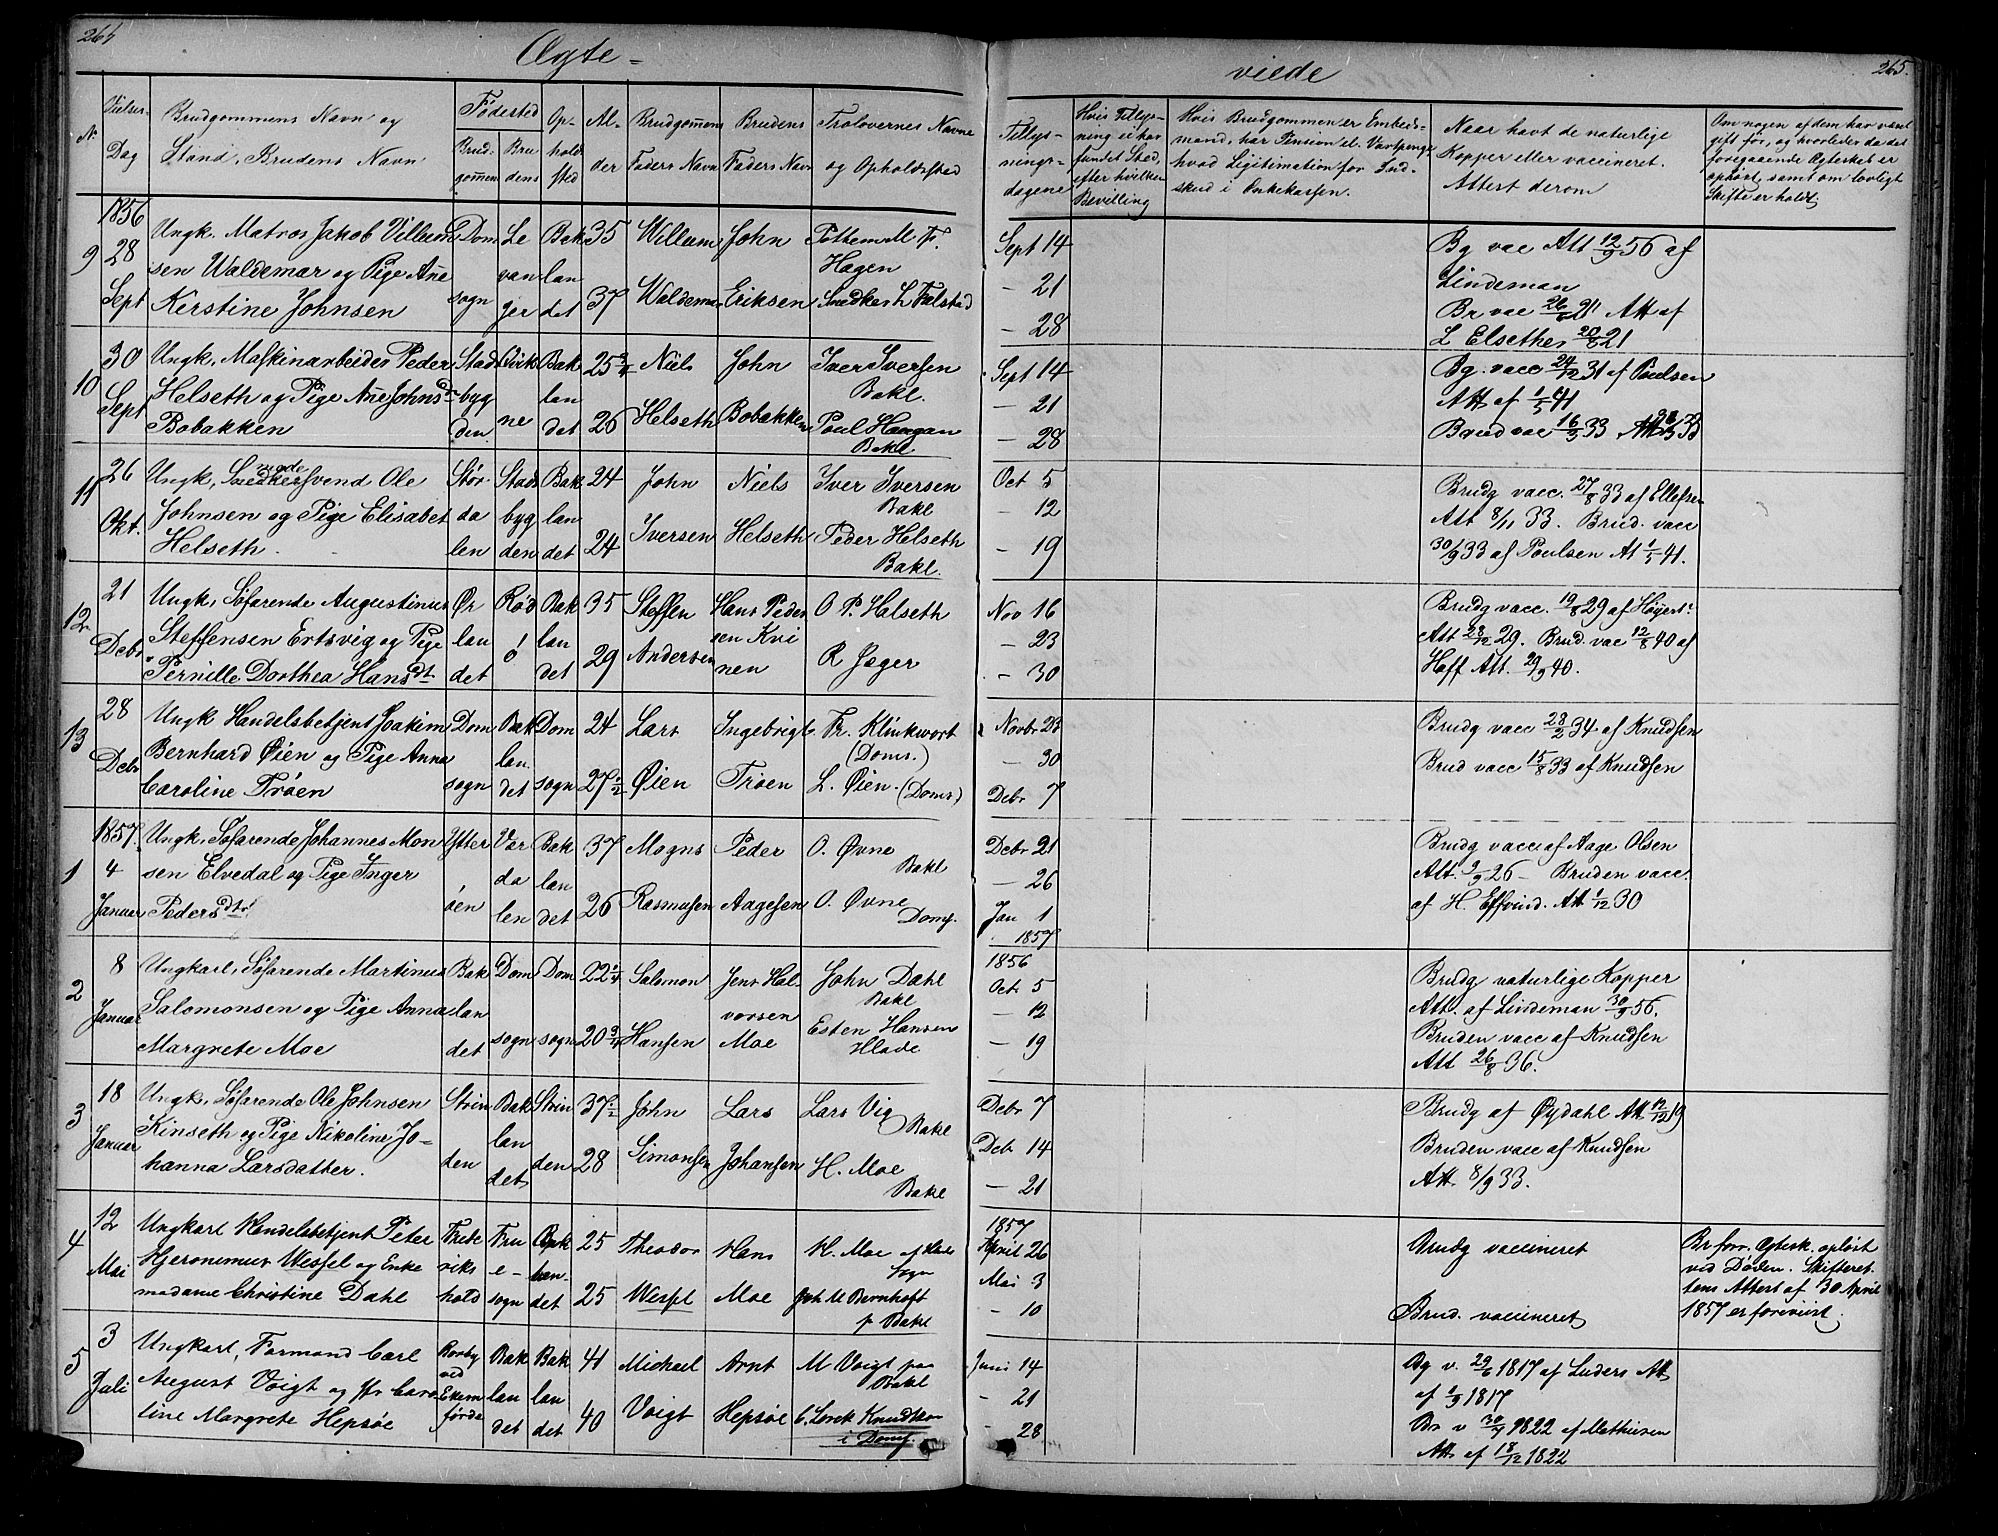 264
Ægte-
viede
265.
N.
Vielses-
Dag
Brudgommens Navn og
Stand, Brudens Navn
Fødested
Brud-
gommen
Bru
dens
Op-
hold
sted
Al-
der
Brudgomens
Faders Navn
Brudens
Faders Navn
Trolovernes Navne
og Opholdssted
Tillys-
nings-
dagene
Hvis Tillys-
ning ei har
fundet Sted,
efter hvilken
Bevilling
Hvis Brudgommen er Embeds-
mand, har Pension el. Vartpenge
hvad Legitimation for Ind-
skud i Enkekassen.
Naar havt de naturlige
Kopper eller vaccineret.
Attest derom
Om nogen af dem har været
gift før, og hvorledes da det
foregaaende Ægteskab er
ophørt, samt om lovligt
Skifte er holdt.
1856
9 28 Sept
Ungk. Matros Jakob Villum
sen Waldemar og Pige Ane
Kerstine Johnsen
Dom
sogn
Le
van
ger
Bak
lan
det
35
37
Willum
Waldemar
John
Eriksen
Hagen
Snedker L Falstad
Sept 14
- 21
- 28
Bg vac Att 12/9 56 af
Lindeman
Br vac 26/6 21 Att af
L Elsether 20/8 21
10 30 Sept
Ungk, Maskinarbeider Peder
Helseth og Pige Ane Johnsd
Bobakken
Stads
byg
den
Virk
ne
Bak
lan
det
25 3/4
26
Niels
Helseth
John
Bobakken
Iver Iversen
Bakl.
Poul Haugan
Bakl
Sept 14
- 21
- 28
Bg. vacc 24/12 31 af Poulsen
Att af 1/5 41
Brud vac 16/5 33
11 26 Okt.
Ungk, Snedkersvend Ole
Johnsen og Pige Elisabet
Helseth.
Stør
da
len
Stads
byg
den
Bak
lan
det
24
24
John
Iversen
Niels
Helseth
Iver Iversen
Bakl
Peder Helseth
Bakl.
Oct 5
- 12
- 19
Brudg vacc. 27/8 33 af Ellefsen
Att 8/11 33. Brud. vacc
30/9 33 af Poulsen At 1/5 41.
12 21 Debr
Ungk, Søfarende Augustinus
Steffensen Ertsvig og Pige
Pernille Dorthea Hansdt
Ør
lan
det
Rød
ø
Bak
lan
det
35
29
Steffen
Andersen
Hans Peder
sen Kvi
nen
O P. Halseth
R Jæger
Nov 16
- 23
- 30
Brudg vacc. 19/8 29 af Høyert
Att 28/12 29. Brud. vac 12/8 40 af
Hoff Att. 29/9 40.
13 28 Debr
Ungk Handelsbetjent Joakim
Bernhard Øien og Pige Anna
Caroline Trøen
Dom
sogn
Bak
lan.
det
Dom
sogn
24
27 1/2
Lars
Øien
Ingebrigt
Trøen
Fr. Klinkwort
(Doms.)
L. Øien. (Doms.)
Novbr 23
- 30
Debr 7
Brudg vacc 28/2 34 af Knudsen
Brud vacc 15/8 33 af Knudsen
1857.
1 4 Januar
Ungk, Søfarende Johannes Mon
sen Elvedal og Pige Inger
Pedersdtr
Ytter
øen
Vær
da
len
Bak
lan
det
37
26
Mogns
Rasmussen
Peder
Aagesen
O. Øvne
Bakl
O. Øvne
Doms.
Debr 21
- 26
Jan 1
1857
Brudg vacc af Aage Olsen
Att. 3/9 26 - Bruden vacc.
af H. Effvind. Att 1/12 30
2 8 Januar
Ungkarl, Søfarende Martinus
Salomonsen og Pige Anna
Margrete Moe
Bak
lan
det
Dom
sogn
Dom
sogn
22 1/4
20 3/4
Salomon
Hansen
Jens Hal-
vorsen
Moe
John Dahl
Bakl
Esten Hansen
Hlade
1856
Oct. 5
- 12
- 19
Brudg naturlige Kopper
Att. af Lindeman 30/9 56.
Bruden vacc af Knudsen
Att 26/8 36.
3 18 Januar
Ungk, Søfarende Ole Johnsen
Kinseth og Pige Nikoline Jo-
hanna Larsdatter.
Strin
den
Bak
lan
det
Strin
den
37 1/2
28
John
Simonsen
Lars
Johansen
Lars Vig
Bakl
H. Moe
Bakl
Debr 7
Debr 14
- 21
Brudg af Øydahl Att 12/12 19
Bruden vacc af Knudsen
Att. 8/9 33.
4 12 Mai
Ungkarl Handelsbetjent Peter
Hjeronimus Wessel og Enke
madame Christine Dahl
Frede
riks
hold
Fru
e-
sogn
Bak
lan-
det
25
25
Theodor
Wessel
Hans
Moe
H. Moe af Hlade
Sogn
Joh M Bernhoft
p Bakl
1857
April 26
Mai 3
- 10
Brudg vaccineret
Brud. vaccineret
Br forr. Ægtesk. opløst
ved Døden. Skifteret
tens Attest af 30 April
1857 er forevist.
5 3 Juli
Ungkarl, Formand Carl
August Voigt og Jfr Caro-
line Margrete Hepsøe
Borby
ved
Ekern
førde
Bak
lan
det
Bak
lan
det
41
40
Michael
Voigt
Arnt
Hepsøe
M Voigt paa
Bakl
C. Lorck Knudtzon
i Doms.
Juni 14
- 21
- 28
Bg v. 29/6 1817 af Luders Att
af 1/9 1817
Br v 30/9 1822 af Mathiesen
Att af 18/12 1822